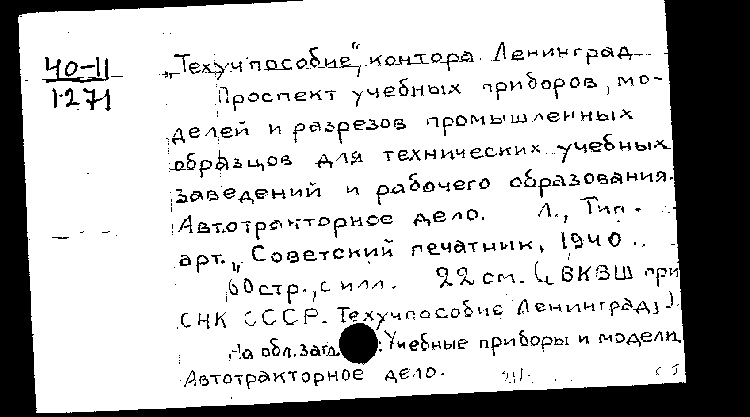 40-11
1271
„Техучпособие", контора. Ленинград
Проспект учебных приборов, мо-
делей и разрезов промышленных
образцов для технических учебных
заведений и рабочего образования.
Автотракторное дело. Л., Тип.
арт. „Советский печатник, 1940.
60 стр., с илл. 22 см. (ВКВШ при
СНК СССР. Техучпособие Ленинград).
На обл. загл.: Учебные приборы и модели.
Автотракторное дело.